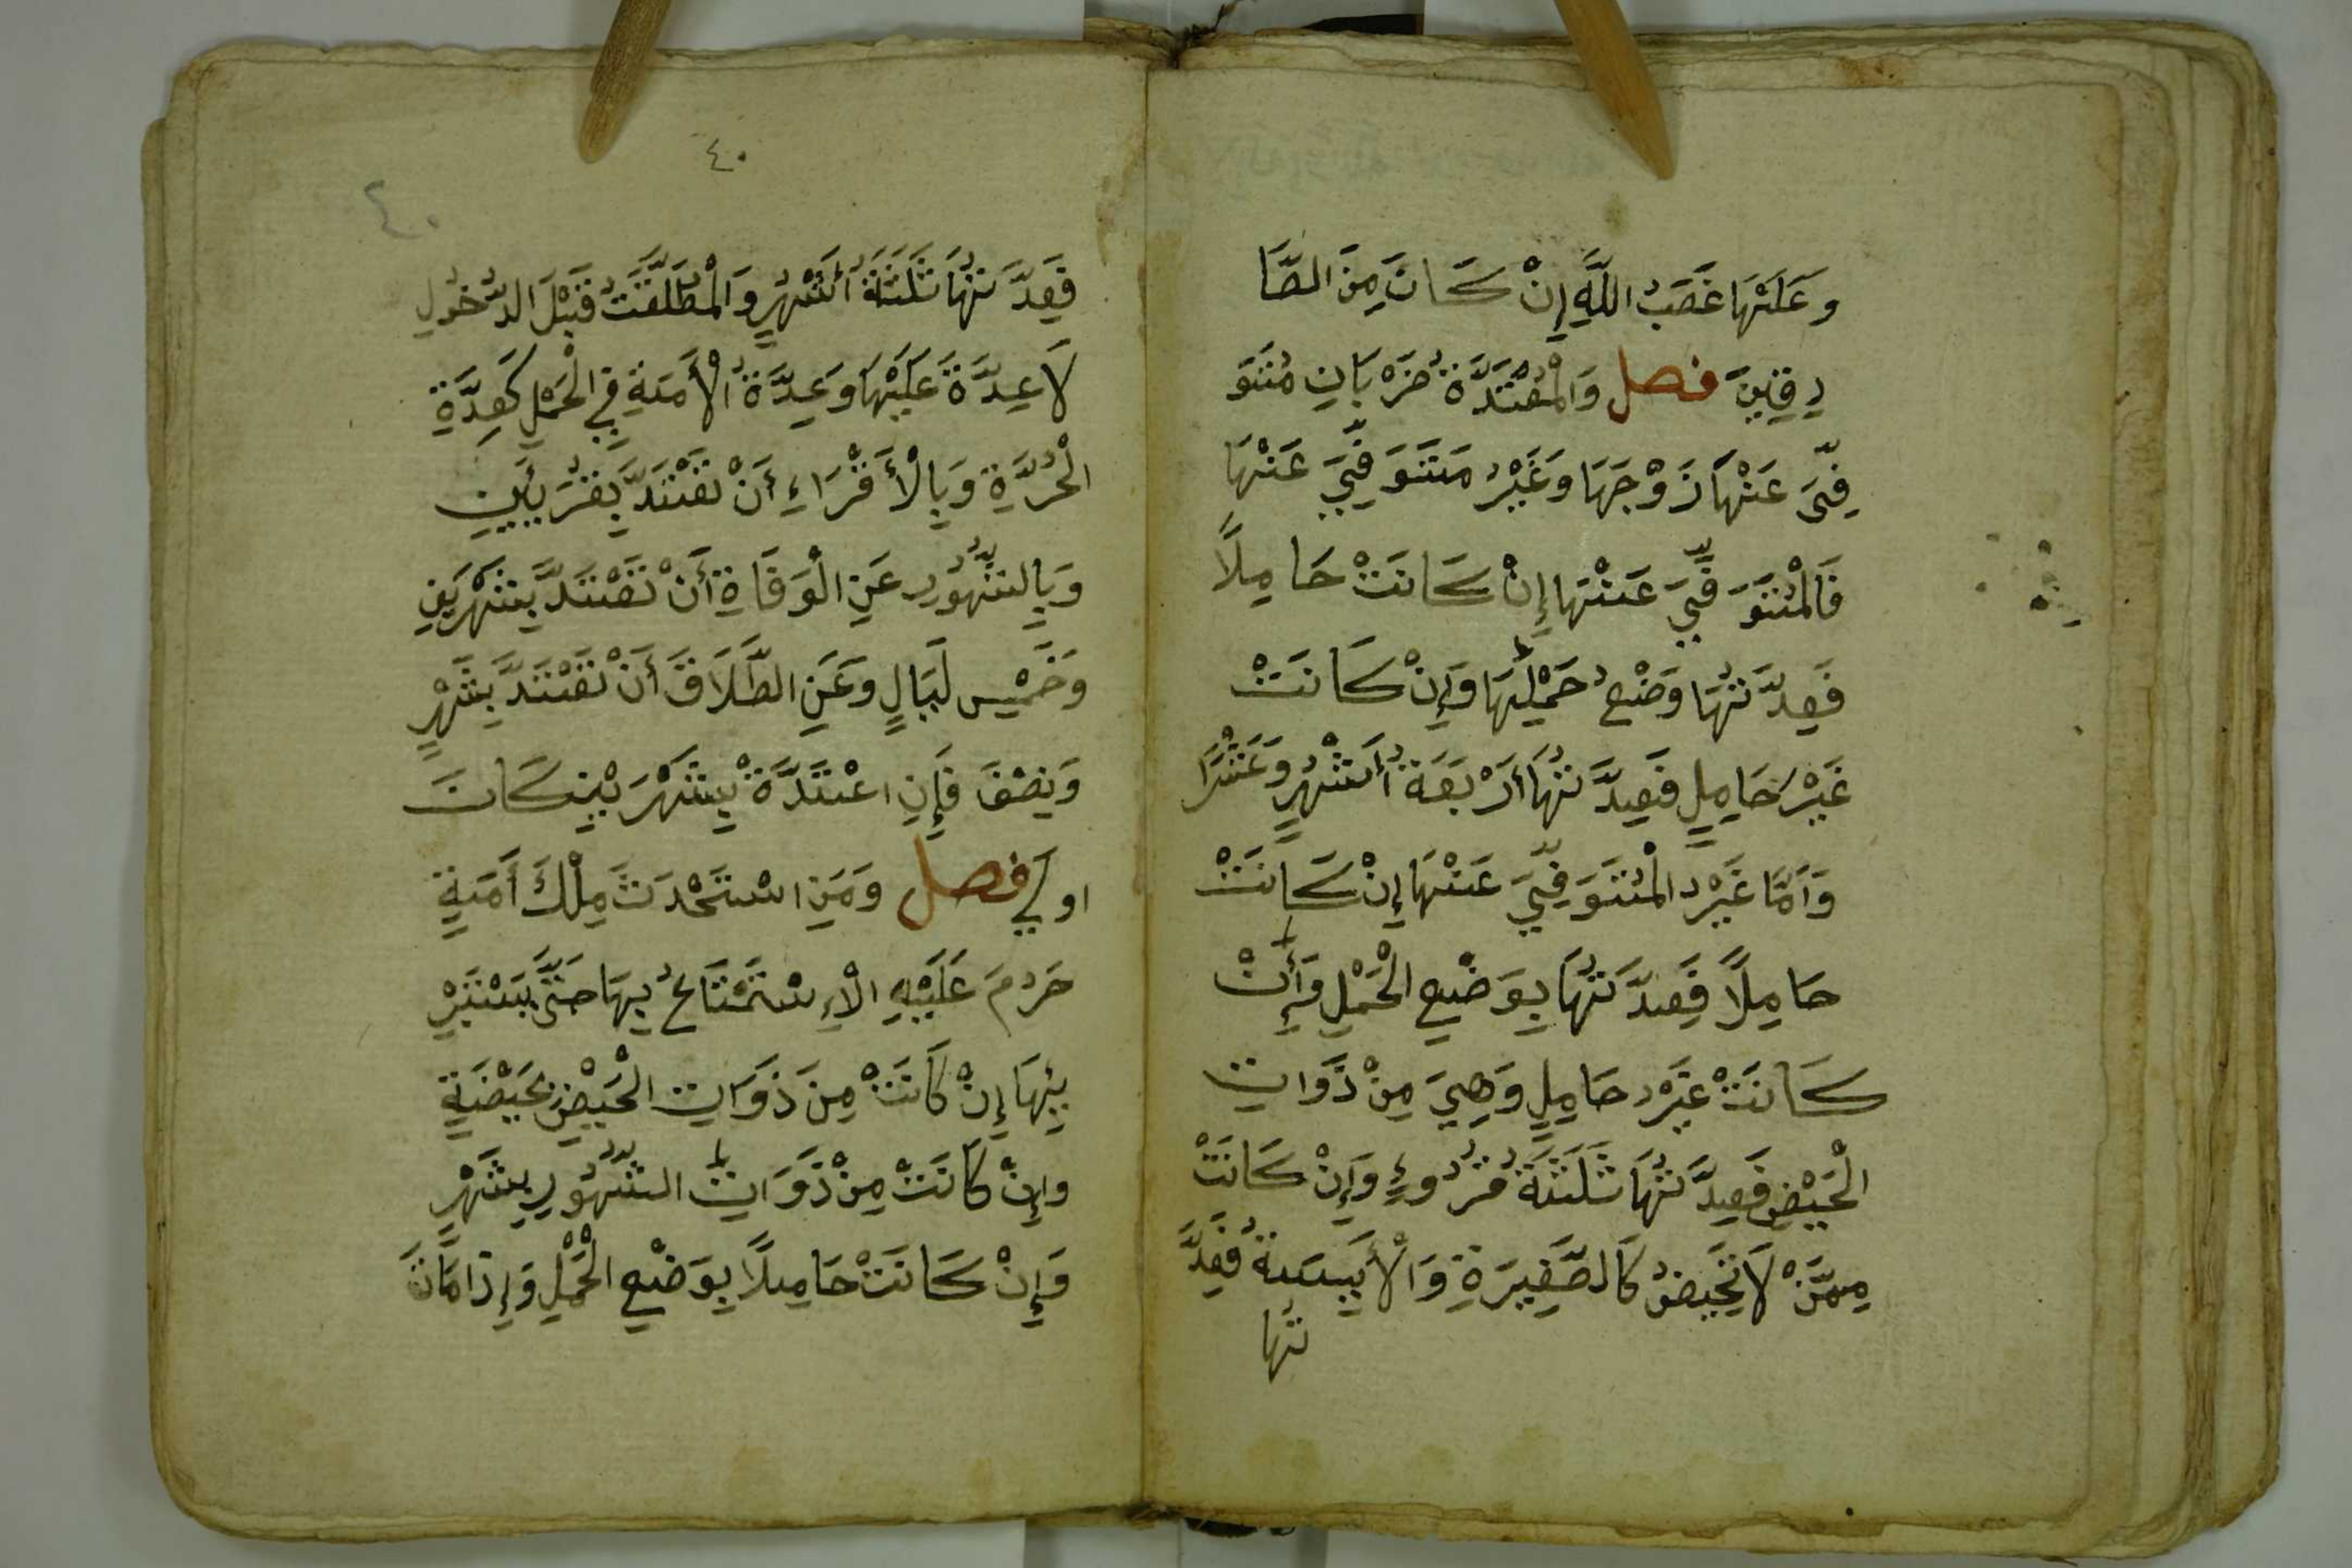 وَعَلَيْهَا غَضَبُ اللَّهِ إِنْ كَانَ مِنَ الصَّا
دِقِينَ فصل وَالْمُعْتَدَّةُ ضَرْبَانِ مُتَوَ
فِّىَ عَنْهَا زَوْجَهَا وَغَيْرُ مُتَوَفِّيَ عَنْهَا
فَالْمُتَوَفِّيَ عَنْهَا إِنْ كَانَتْ حَامِلًا
فَعِدَّتُهَا وَضْعُ حَمْلِهَا وَإِنْ كَانَتْ
غَيْرَ حَامِلٍ فَعِدَّتُهَا أَرْبَعَةُ أَشْهُرٍ وَعَشْرًا
وَأَمَّا غَيْرُ الْمُتَوَفِّيَ عَنْهَا إِنْ كَانَتْ
حَامِلًا فَعِدَّتُهَا بِوَضْعِ الْحَمْلِ وَإِنْ
كَانَتْ غَيْرَ حَامِلٍ وَهِيَ مِنْ ذَوَاتِ
الْحَيْضِ فَعِدَّتُهَا ثَلَثَةُ قُرُوءٍ وَإِنْ كَانَتْ
مِمَّنْ لَا تَحَيضُ كَالصَّغِيرَةِ وَالْأَيِسَةُ فَعِدَّ
تُهَا
٤٠
٤٠
فَعِدَّتُهَا ثَلَثَةُ أَشْهُرٍ وَالْمُطَلَّقَتُ قَبْلَ الدُّخُولِ
لَا عِدَّةَ عَلَيْهَا وَعِدَّةُ الْأَمَةِ فِي الْحَمْلِ كَعِدَّةِ
الْحُرَّةِ وَبِالْأَقْرَاءِ أَنْ تَعْتَدَّ بِقُرْئَيْنِ
وَبِالشُّهُورِ عَنِ الْوَفَاةِ أَنْ تَعْتَدَّ بِشَهْرَيْنِ
وَخَمْسِ لَيَالٍ وَعَنِ الطَّلَاقَ أَنْ تَعْتَدَّ بِشَهْرٍ
وَنِصْفَ فَإِنِ اعْتَدَّةْ بِشَهْرَيْنِ كَانَ
اولَي فصل وَمَنِ اسْتَحْدَثَ مِلْكَ أَمَةٍ
حَرُمَ عَلَيْهِ الْاِسْتَمْتَاعُ بِهَا حَتَّى يَسْتَبْرِ
يِهَا إِنْ كَانَتْ مِنَ ذَوَاتِ الْحَيْضِ بِحَيْضَةٍ
وَإِنْ كَانَتْ مِنْ ذَوَاتِ الشُّهُورِ بِشَهْرٍ
وَإِنْ كَانَتْ حَامِلًا بِوَضْعِ الْحَمْلِ وَإِذَا مَاتَ